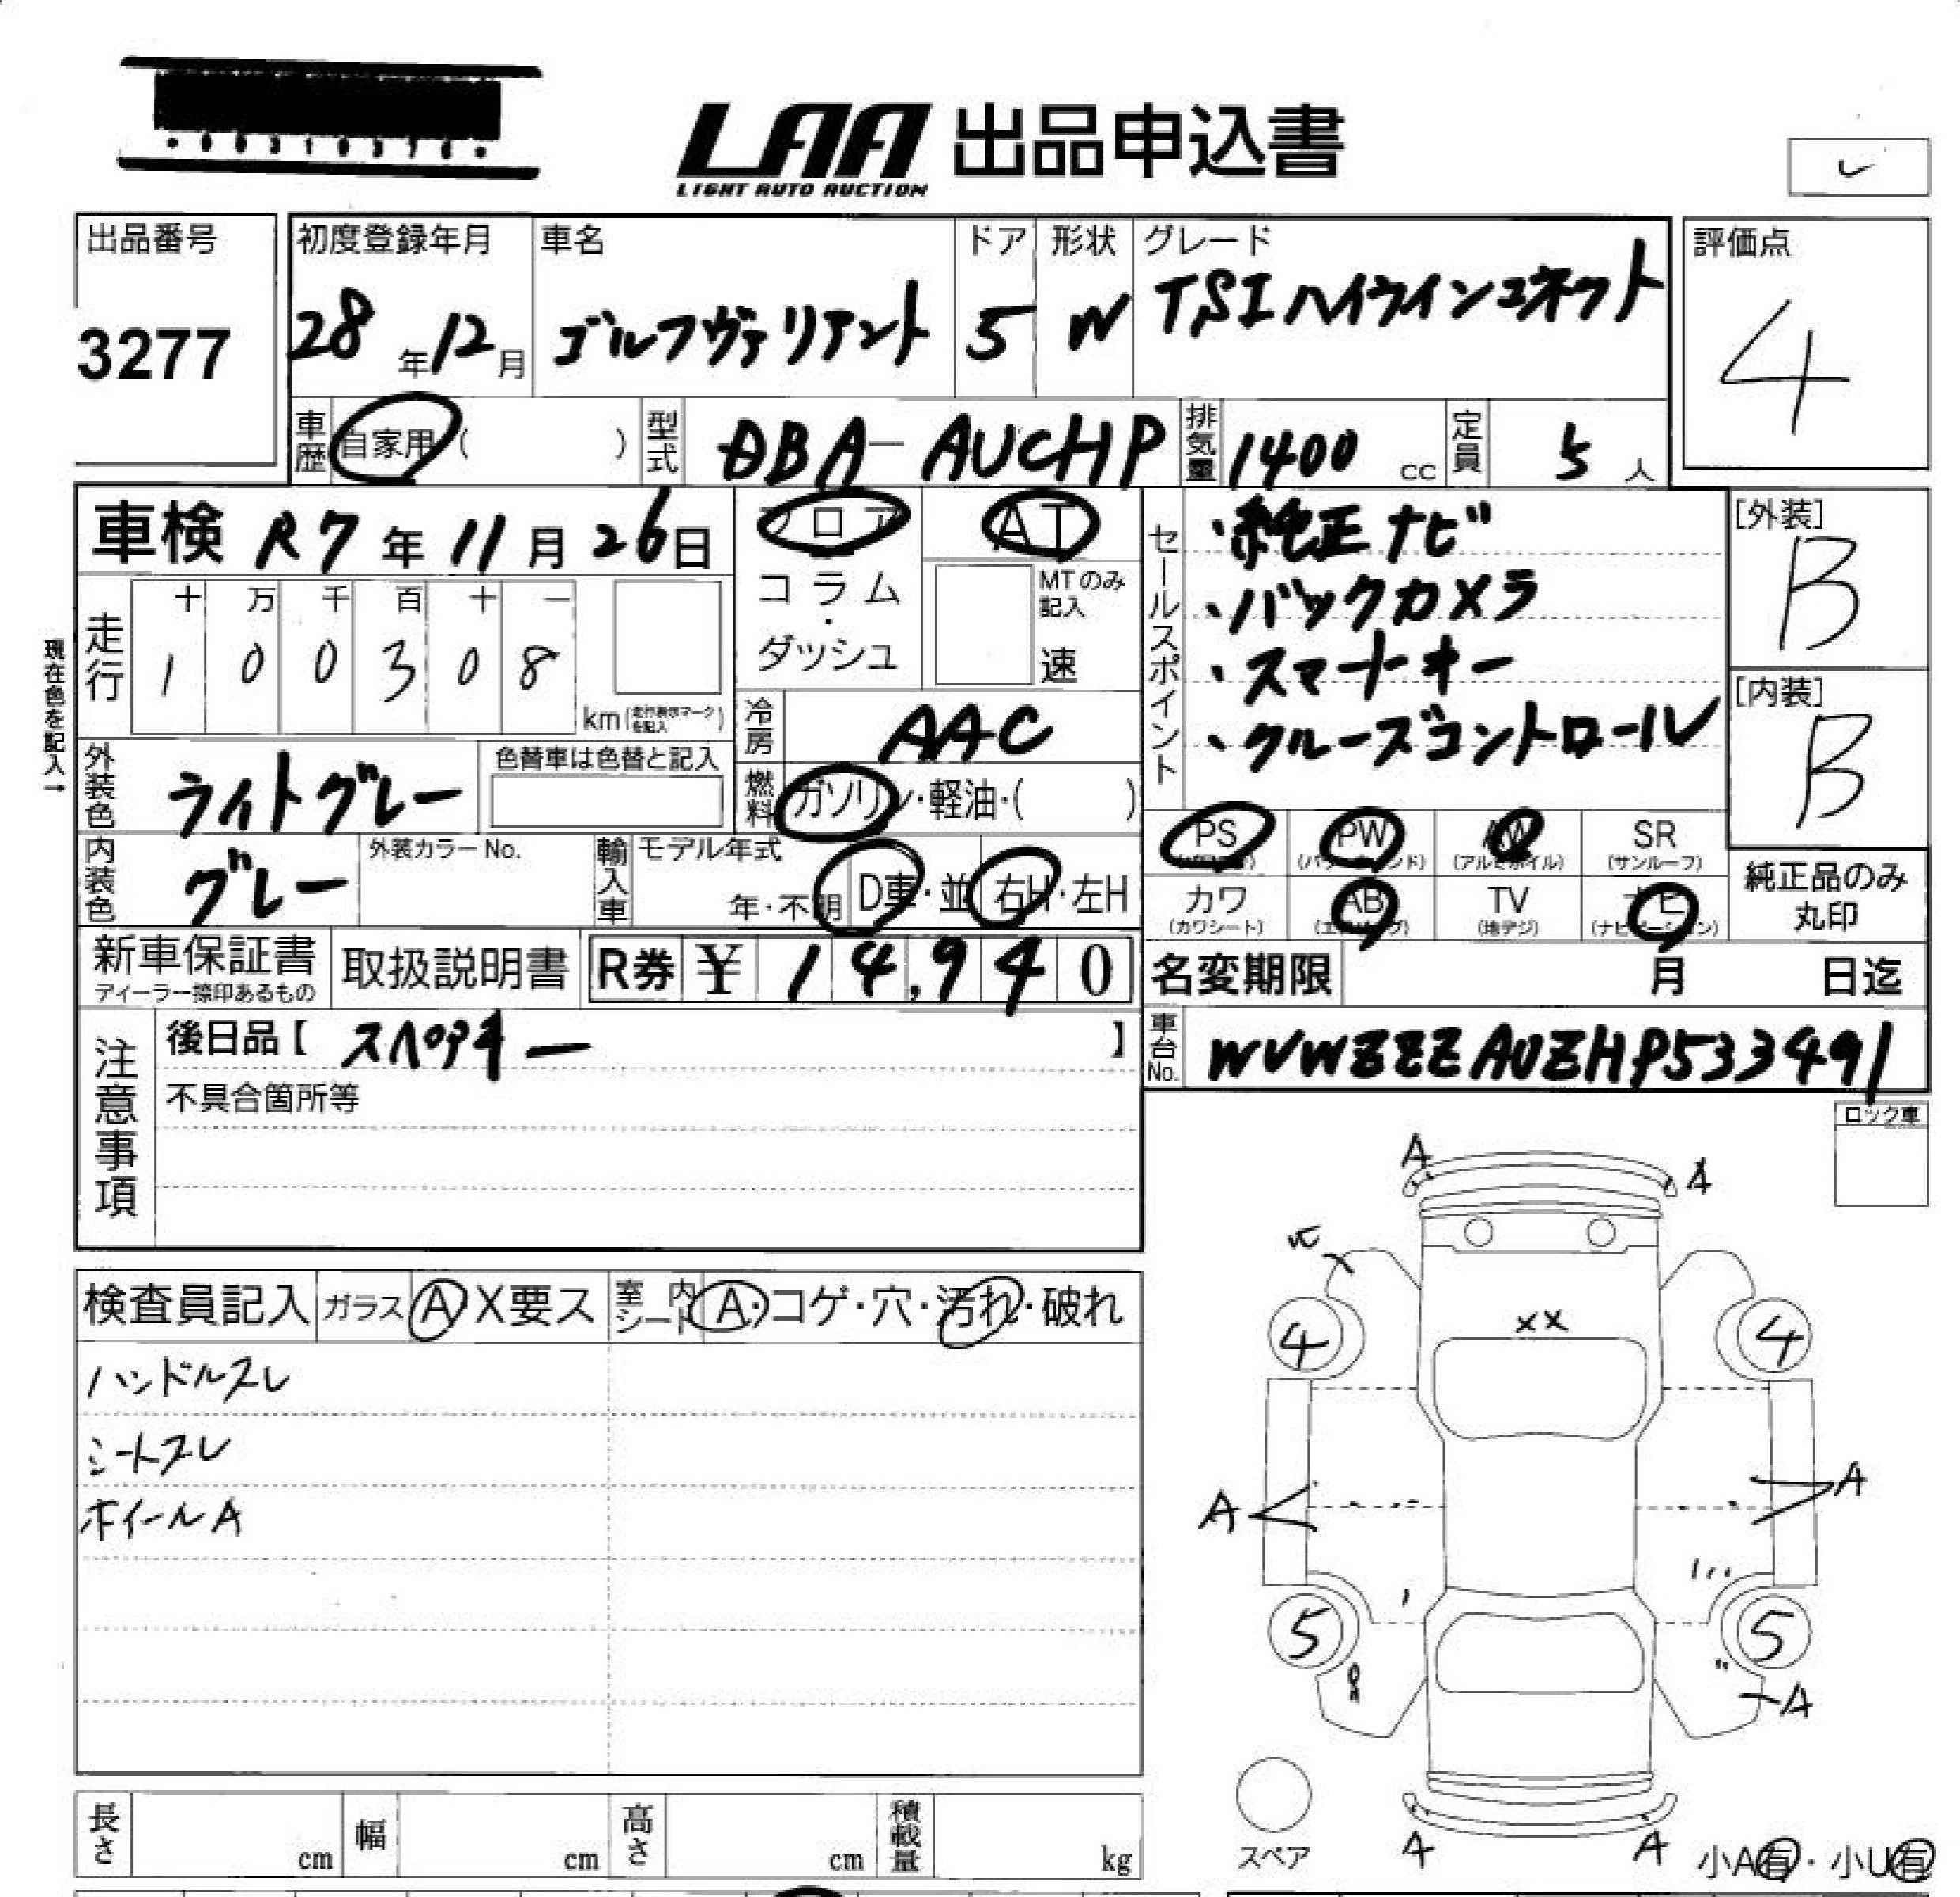 LAA 出品申込書
LIGHT AUTO AUCTION
出品番号
3277
初度登録年月
28年12月
車名
ゴルフヴァリアント
ドア
5
形状
W
グレード
TSIハイラインコネクト
評価点
4
車歴 自家用 ( )
型式 DBA-AUCHP
排気量 1400 cc
定員 5 人
車検 R7年11月26日
フロア
コラム
・
ダッシュ
AT
MTのみ記入
速
セールスポイント
・純正ナビ
・バックカメラ
・スマートキー
・クルーズコントロール
[外装]
B
[内装]
B
現在色を記入→
走行
十 万 千 百 十 一
1 0 0 3 0 8
km (走行表示マークを記入)
冷房 AAC
外装色 ライトグレー
色替車は色替と記入
燃料 ガソリン・軽油・( )
内装色 グレー
外装カラーNo.
輸入車 モデル年式
年・不明
D車・並
右H・左H
PS
PW (パワーウィンド)
AW (アルミホイル)
SR (サンルーフ)
カワ (カワシート)
AB (エアバッグ)
TV (地デジ)
ナビ (ナビゲーション)
純正品のみ
丸印
新車保証書
ディーラー捺印あるもの
取扱説明書
R券 ¥ 14,940
名変期限 月 日迄
注意事項
後日品【 スペアキー 】
不具合箇所等
車台No. WVWZZZAUZHP533491
ロック車
検査員記入
ガラス A X要ス
室内シート A・コゲ・穴・汚れ・破れ
ハンドルスレ
シートスレ
ホイールA
A A
XX
4 4
A A
5 5
A
A A
スペア
小A有・小U有
長さ cm
幅 cm
高さ cm
積載量 kg